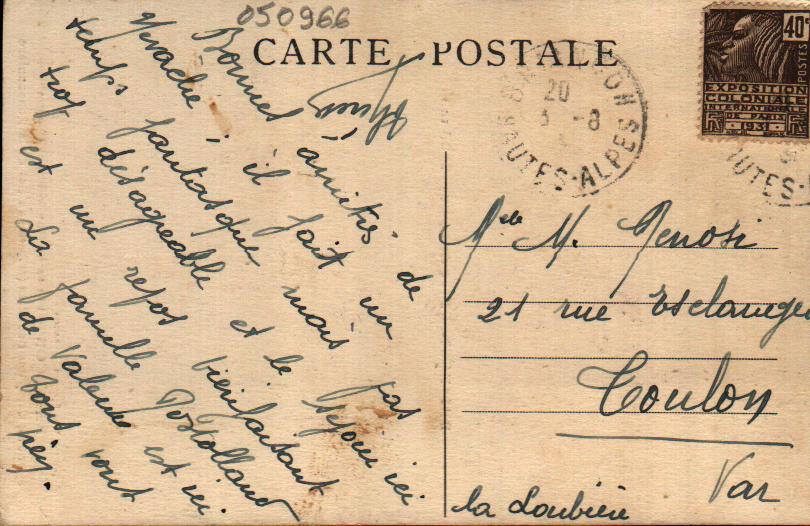 050966
CARTE POSTALE
40c
POSTES
EXPOSITION
COLONIALE
INTERNATIONALE
PARIS
1931
20
3 - 8
HAUTES-ALPES
UTES-
Bonnes amitiés de
Névache ; il fait un
temps fantasque mais pas
trop désagréable et le séjour ici
est un repos bienfaisant
La famille Rolland
de Valence est ici.
tous vont
bien.
Mlle M. Renosi
21 rue Esclangon
Toulon
Var
la Loubière